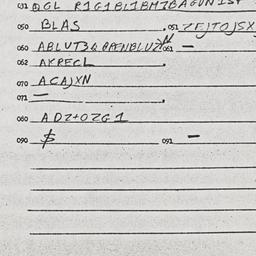 031 QGL R1G1BL1BM7BAGUN1ST
050 BLAS 051 ZFJTOJSX
060 061 —
062 AKRECL
070 ACAJXN
071 —
080 ADZ+OZG1
090 $ 091 —